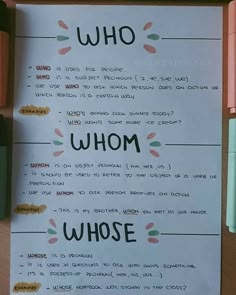 WHO
- WHO IS USED FOR PEOPLE.
- WHO IS A SUBJECT PRONOUN (I, HE, SHE, WE)
- WE USE WHO TO ASK WHICH PERSON DOES AN ACTION OR
WHICH PERSON IS A CERTAIN WAY
EXAMPLES
- WHO'S DRIVING COOL SUMMER TODAY?
- WHO WANTS SOME MORE ICE CREAM?
WHOM
- WHOM IS AN OBJECT PRONOUN (HIM, HER, US..)
- IT SHOULD BE USED TO REFER TO THE OBJECT OF A VERB OR
PREPOSITION
- WE USE WHOM TO ASK PERSON RECEIVES AN ACTION
EXAMPLES
- THIS IS MY BROTHER, WHOM YOU MET AT OUR HOUSE.
WHOSE
- WHOSE IS A PRONOUN
- IT IS USED IN QUESTIONS TO ASK WHO OWNS SOMETHING
- IT'S A POSSESSIVE PRONOUN (HER, HIS, OUR...)
- WHOSE NOTEBOOK WAS STOLEN IN THE CLASS?